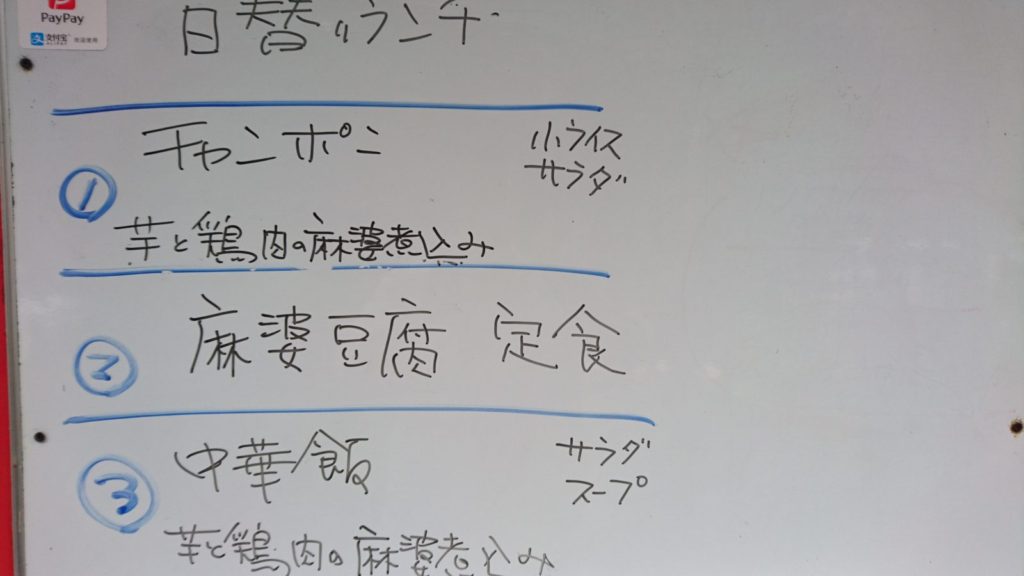 PayPay
支付宝
日替りランチ
チャンポン
小ライス
サラダ
①
芋と鶏肉の麻婆煮込み
②
麻婆豆腐 定食
③
中華飯
サラダ
スープ
芋と鶏肉の麻婆煮込み